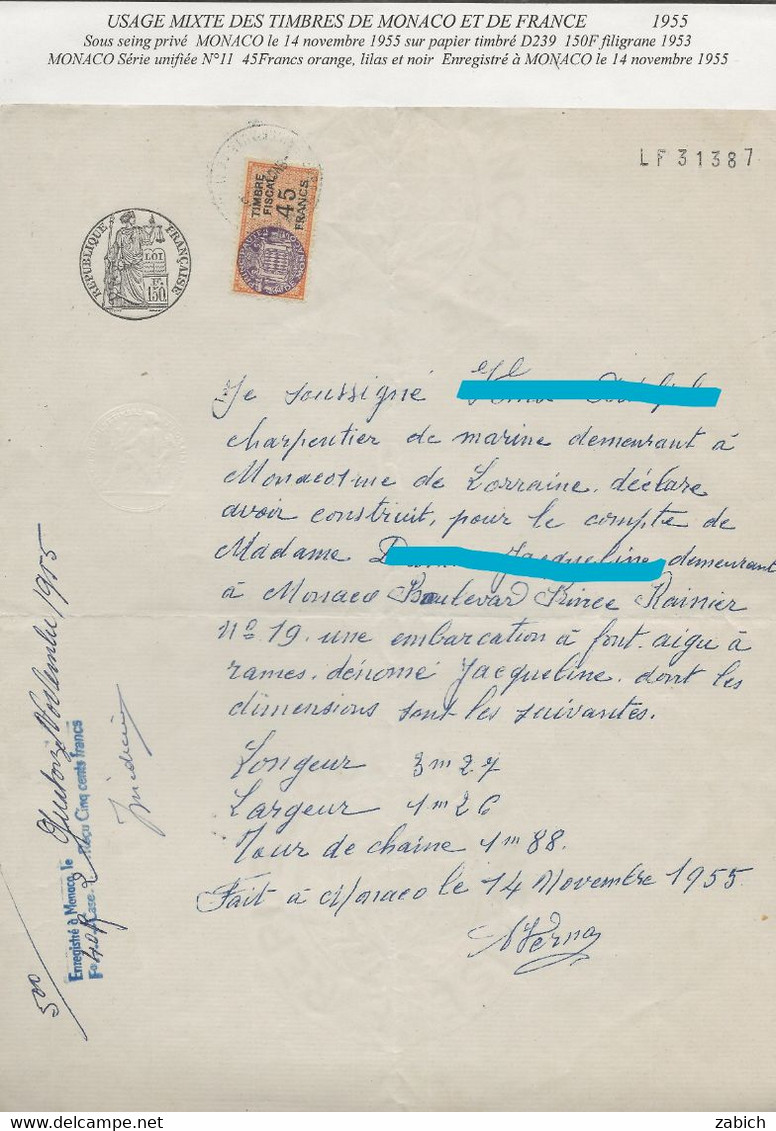 USAGE MIXTE DES TIMBRES DE MONACO ET DE FRANCE 1955
Sous seing privé MONACO le 14 novembre 1955 sur papier timbré D239 150F filigrane 1953
MONACO Série unifiée N°11 45Francs orange, lilas et noir Enregistré à MONACO le 14 novembre 1955
LF 31387
TIMBRE
FISCAL
45
FRANCS
RÉPUBLIQUE FRANÇAISE
LOI
F.
1.50
Je soussigné
charpentier de marine demeurant à
Monaco de Lorraine, déclare
avoir construit, pour le compte de
Madame Jacqueline demeurant
à Monaco Boulevar Prince Rainier
nº 19. une embarcation à font. aigu à
rames. dénomé Jacqueline. dont les
dimensions sont les suivantes.
Longeur 3m27
Largeur 1m26
Tour de chaine 1m88.
Fait à Monaco le 14 Novembre 1955
500
Enregistré à Monaco, le Quatorze Novembre 1955
Fº 40 Case 2 Reçu Cinq cents francs
zabich